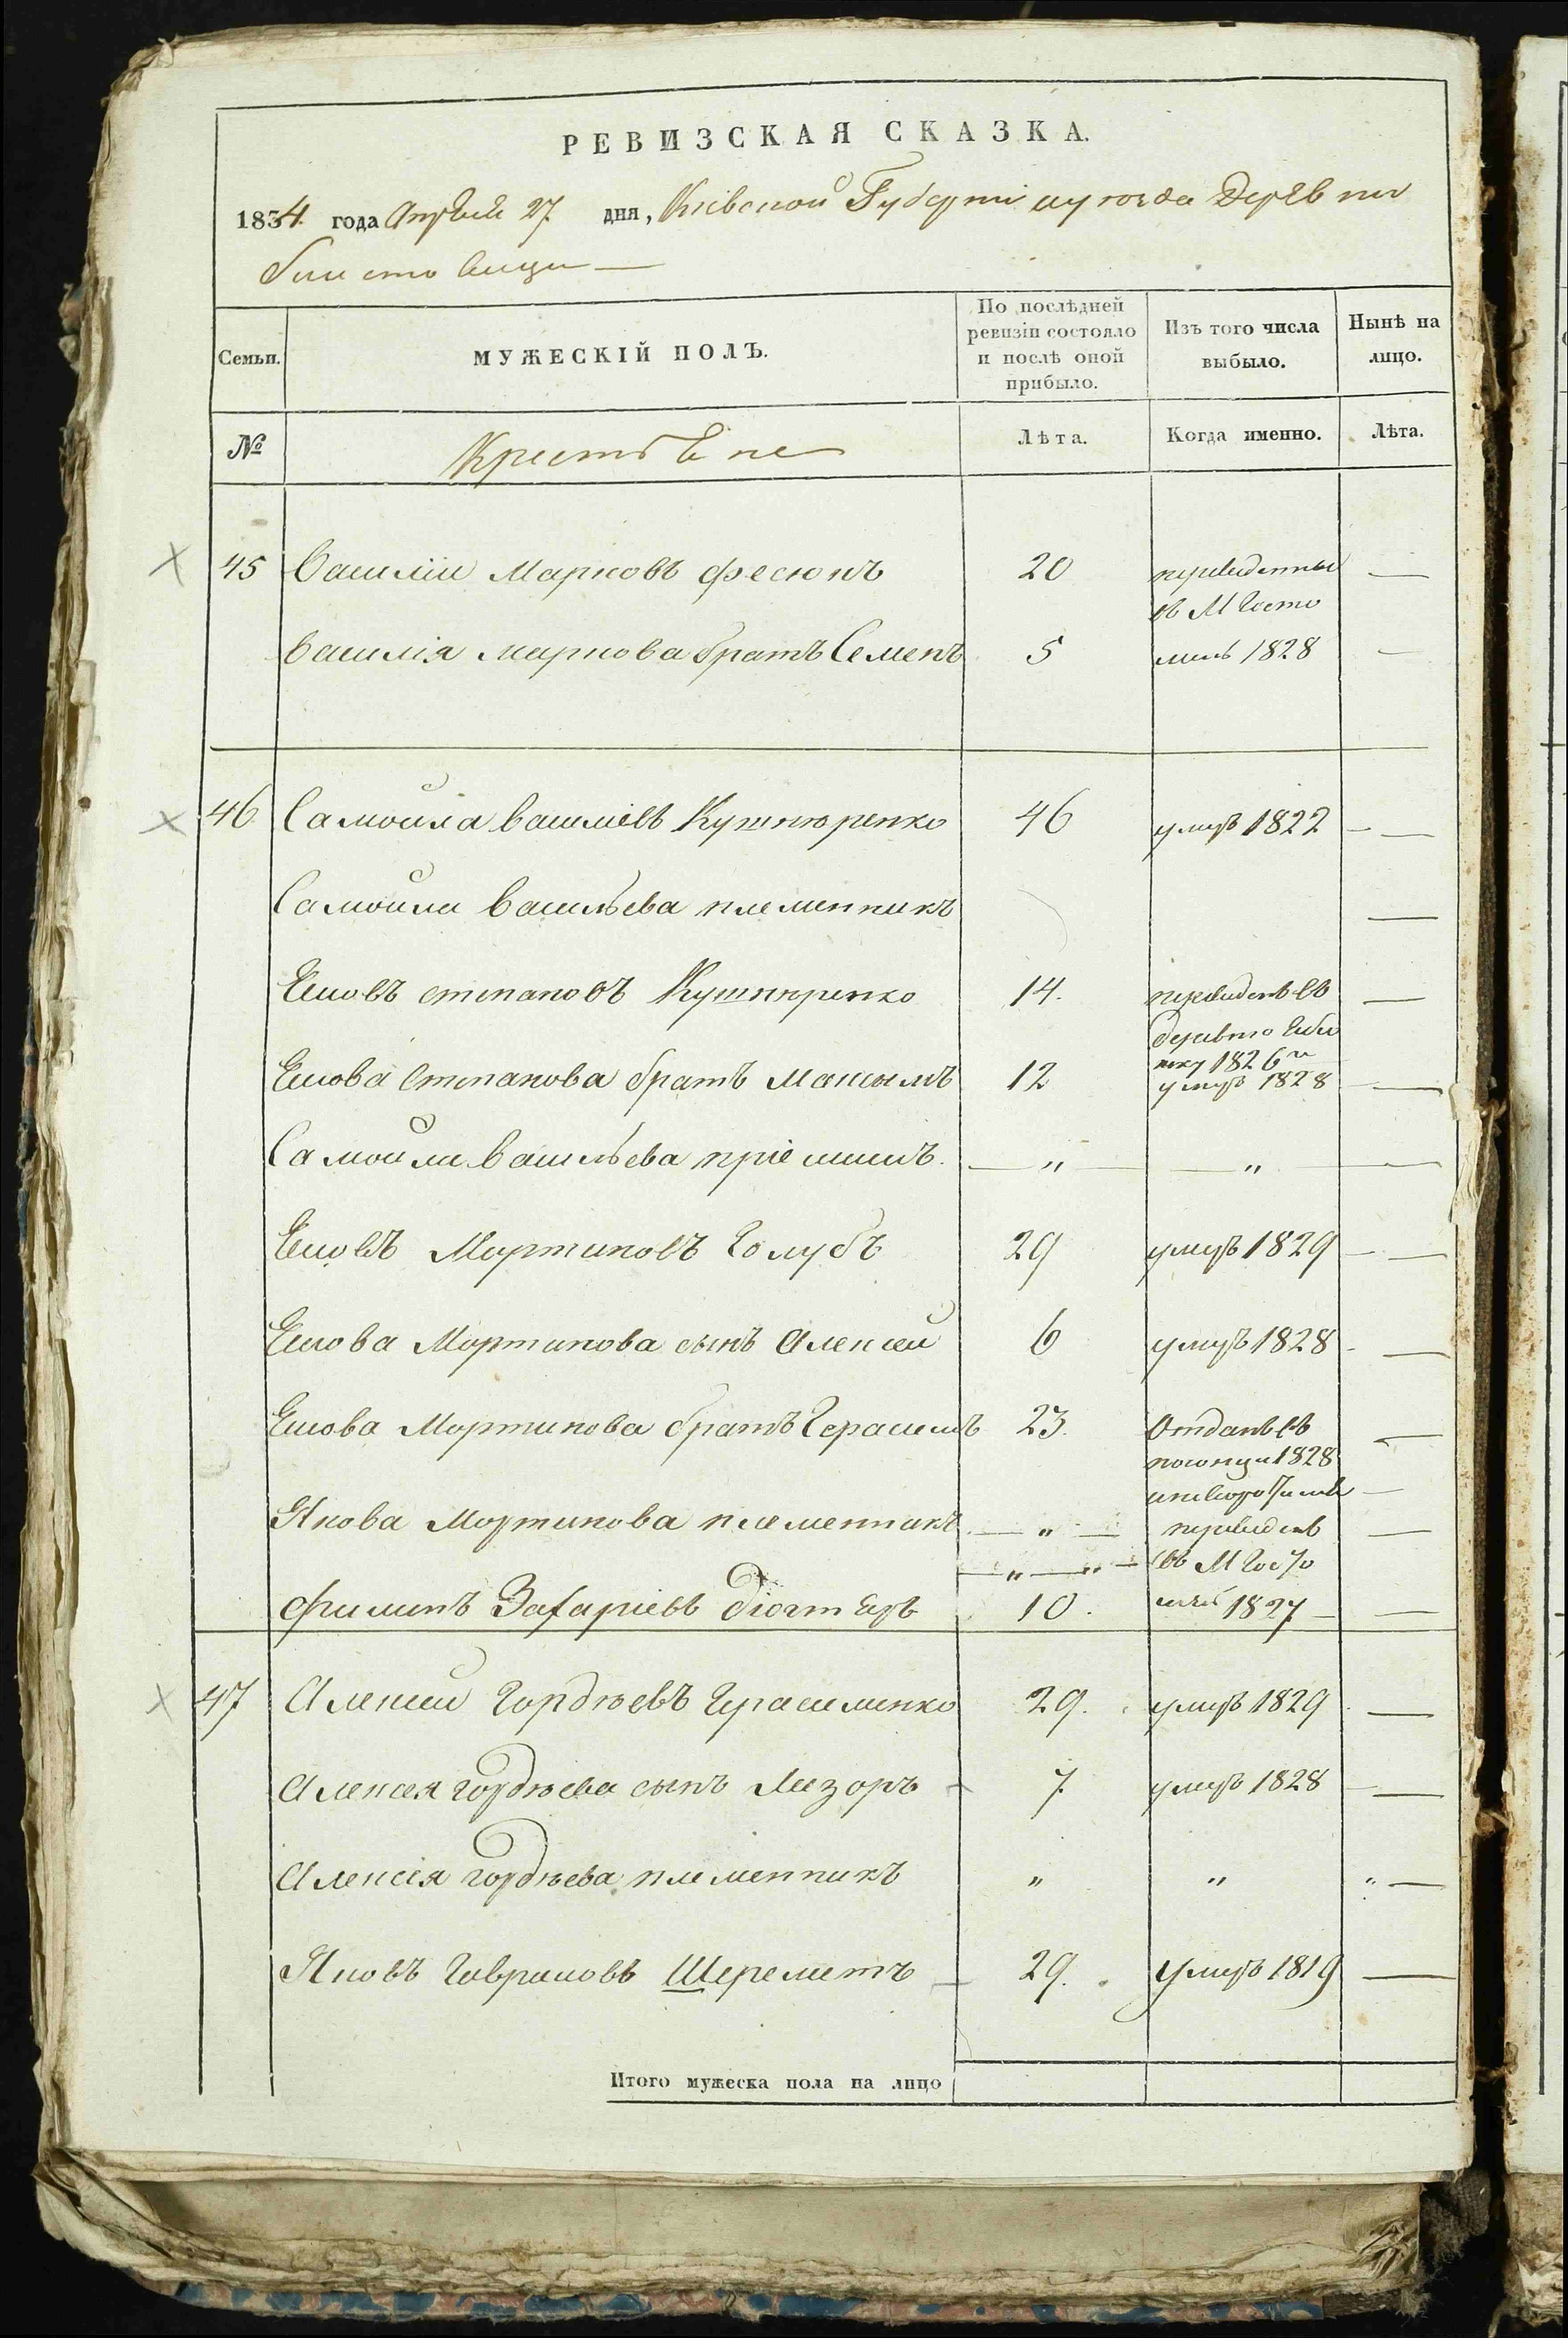 РЕВИЗСКАЯ СКАЗКА.
1834 года Апреля 27 дня, Кіевской Губерніи уезда Деревни
Семьи. МУЖЕСКІЙ ПОЛЪ. По послѣдней ревизіи состояло и послѣ оной прибыло. Изъ того числа выбыло. Нынѣ на лицо.
№ Крестьяне Лѣта. Когда именно. Лѣта.
45 Василіи Марковъ Фесюнъ 20 переведенны —
въ М Госто
Василія Маркова братъ Семенъ 5 мель 1828 —
46 Самойла Василіевъ Кушнюренко 46 умеръ 1822 —
Самойла Васильева племенникъ —
Яковъ степановъ Кушнюренко 14. переведенъ въ —
деревню
1826
Якова Степанова братъ Максымъ 12 умеръ 1828 —
Самойла Васильева пріемишъ — " — — " — —
Яковъ Мартиновъ Голубъ 29 умеръ 1829 —
Якова Мартинова сынъ Алексей 6 умеръ 1828 —
Якова Мартинова братъ Герасимъ 23. Отданъ въ —
1828
Якова Мартинова племенникъ — " — переведенъ —
— " — " — въ М Госто
Филипъ Захаріевъ Дюгтяръ 10. мель 1827 —
47 Алексей Гордѣевъ Герасименко 29. умеръ 1829 —
Алексея гордѣева сынъ Лазоръ 7 умеръ 1828 —
Алексія гордѣева племенникъ " " " —
Яковъ Гавриловъ Шереметъ 29. Умеръ 1819 —
Итого мужеска пола на лицо